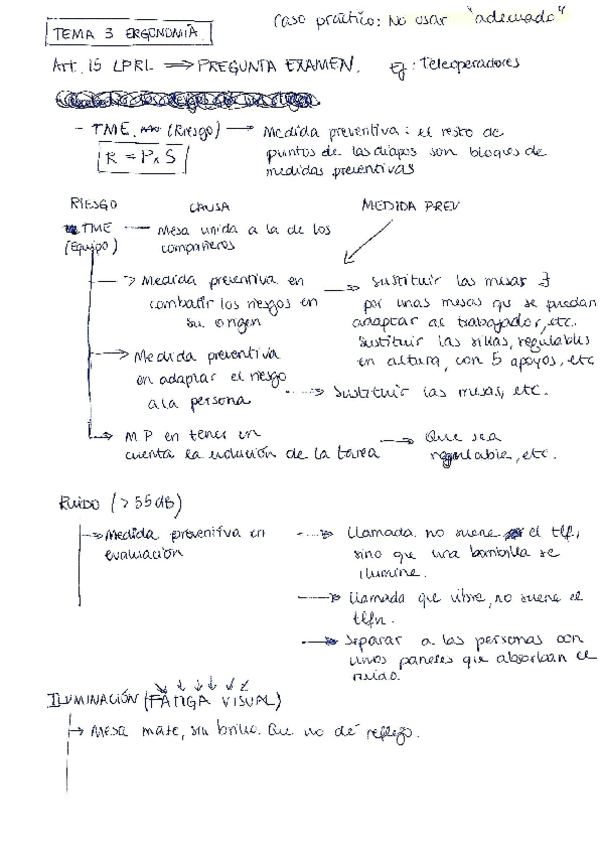 Caso práctico: No usar "adecuado"
TEMA 3 ERGONOMÍA.
Art. 15 LPRL ⟹ PREGUNTA EXAMEN. Ej: Teleoperadores
- TME (Riesgo) → Medida preventiva: el resto de
R = P x S
puntos de las diapos son bloques de
medidas preventivas
RIESGO CAUSA MEDIDA PREV
TME — Mesa unida a la de los
(Equipo) compañeros
→ Medida preventiva en
combatir los riesgos en
su origen
→ Sustituir las mesas
por unas mesas que se puedan
adaptar al trabajador, etc.
Sustituir las sillas, regulables
en altura, con 5 apoyos, etc
→ Medida preventiva
en adaptar el riesgo
a la persona
→ Sustituir las mesas, etc.
→ M.P en tener en
cuenta la evolución de la tarea
→ Que sea
regulable, etc.
RUIDO (> 55 dB)
→ Medida preventiva en
evaluación
→ Llamada no suene el tlf,
sino que una bombilla se
ilumine.
→ Llamada que vibre, no suene el
tlfn.
→ Separar a las personas con
unos paneles que absorban el
ruido.
ILUMINACIÓN (FATIGA VISUAL)
→ Mesa mate, sin brillo. Que no dé reflejo.